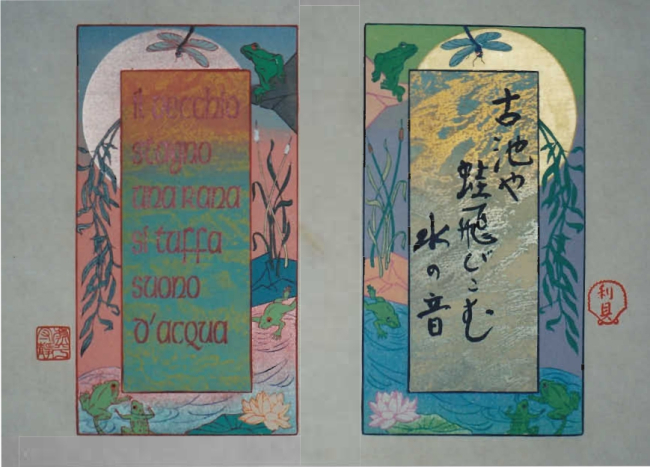 il vecchio
stagno
una rana
si tuffa
suono
d'acqua
古池や
蛙飛びこむ
水の音